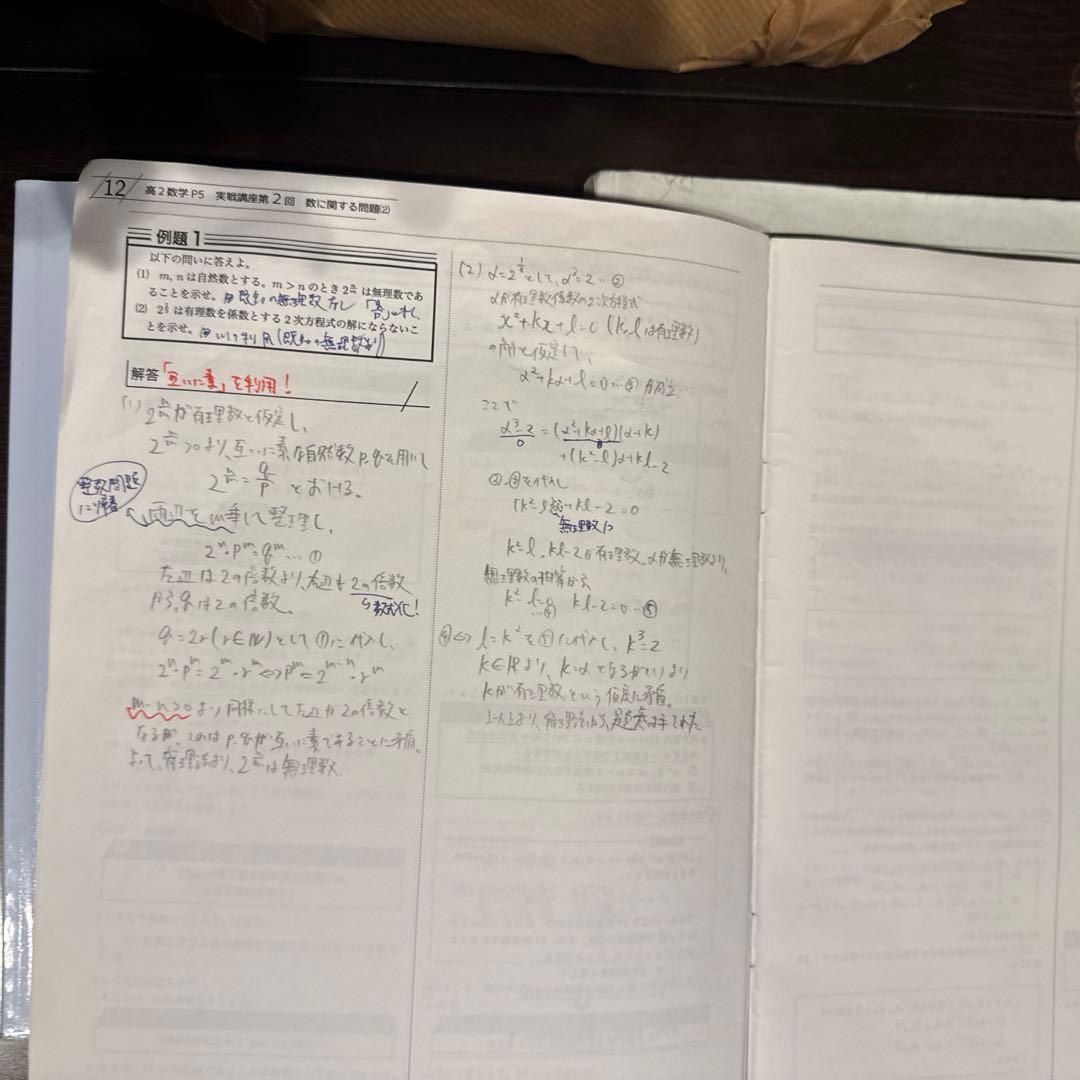 12 高2数学P5 実戦講座第2回 数に関する問題(2)
例題1
以下の問いに答えよ。
(1) m, nは自然数とする。m > nのとき 2^{n/m} は無理数であ
ることを示せ。
(2) 2^{1/3} は有理数を係数とする2次方程式の解にならないこ
とを示せ。
解答 「互いに素」を利用!
(1) 2^{n/m}が有理数と仮定し、
2^{n/m}>0より、互いに素な自然数p, qを用いて
2^{n/m} = q/p とおける。
整数問題
に帰着
両辺をm乗して整理し、
2^n・p^m = q^m … ①
左辺は2の倍数より、右辺も2の倍数
から、qは2の倍数。
数式化!
q = 2r (r∈N)として①に代入し、
2^n・p^m = 2^m・r^m ⇔ p^m = 2^{m-n}・r^m
m-n>0より同様にして左辺が2の倍数と
なるが、これはp, qが互いに素であることに矛盾。
よって、背理法より、2^{n/m}は無理数
(2) α = 2^{1/3}として、α^3 = 2 … ②
αが有理数係数の2次方程式
x^2+kx+l=0 (k, lは有理数)
の解と仮定して、
α^2+kα+l=0 … ③ が成立
ここで
α^3-2 = (α^2+kα+l)(α-k)
0 0
+(k^2-l)α+kl-2
②,③を代入し
(k^2-l)α+kl-2=0
無理数
k^2-l, kl-2が有理数、αが無理数より、
無理数の相等から
k^2-l=0 kl-2=0 … ⑤
④
④⇔ l=k^2を⑤に代入し、k^3=2
k∈Rより、k=αとなるが(1)より
kが有理数という仮定に矛盾。
以上より、背理法から、題意は示された